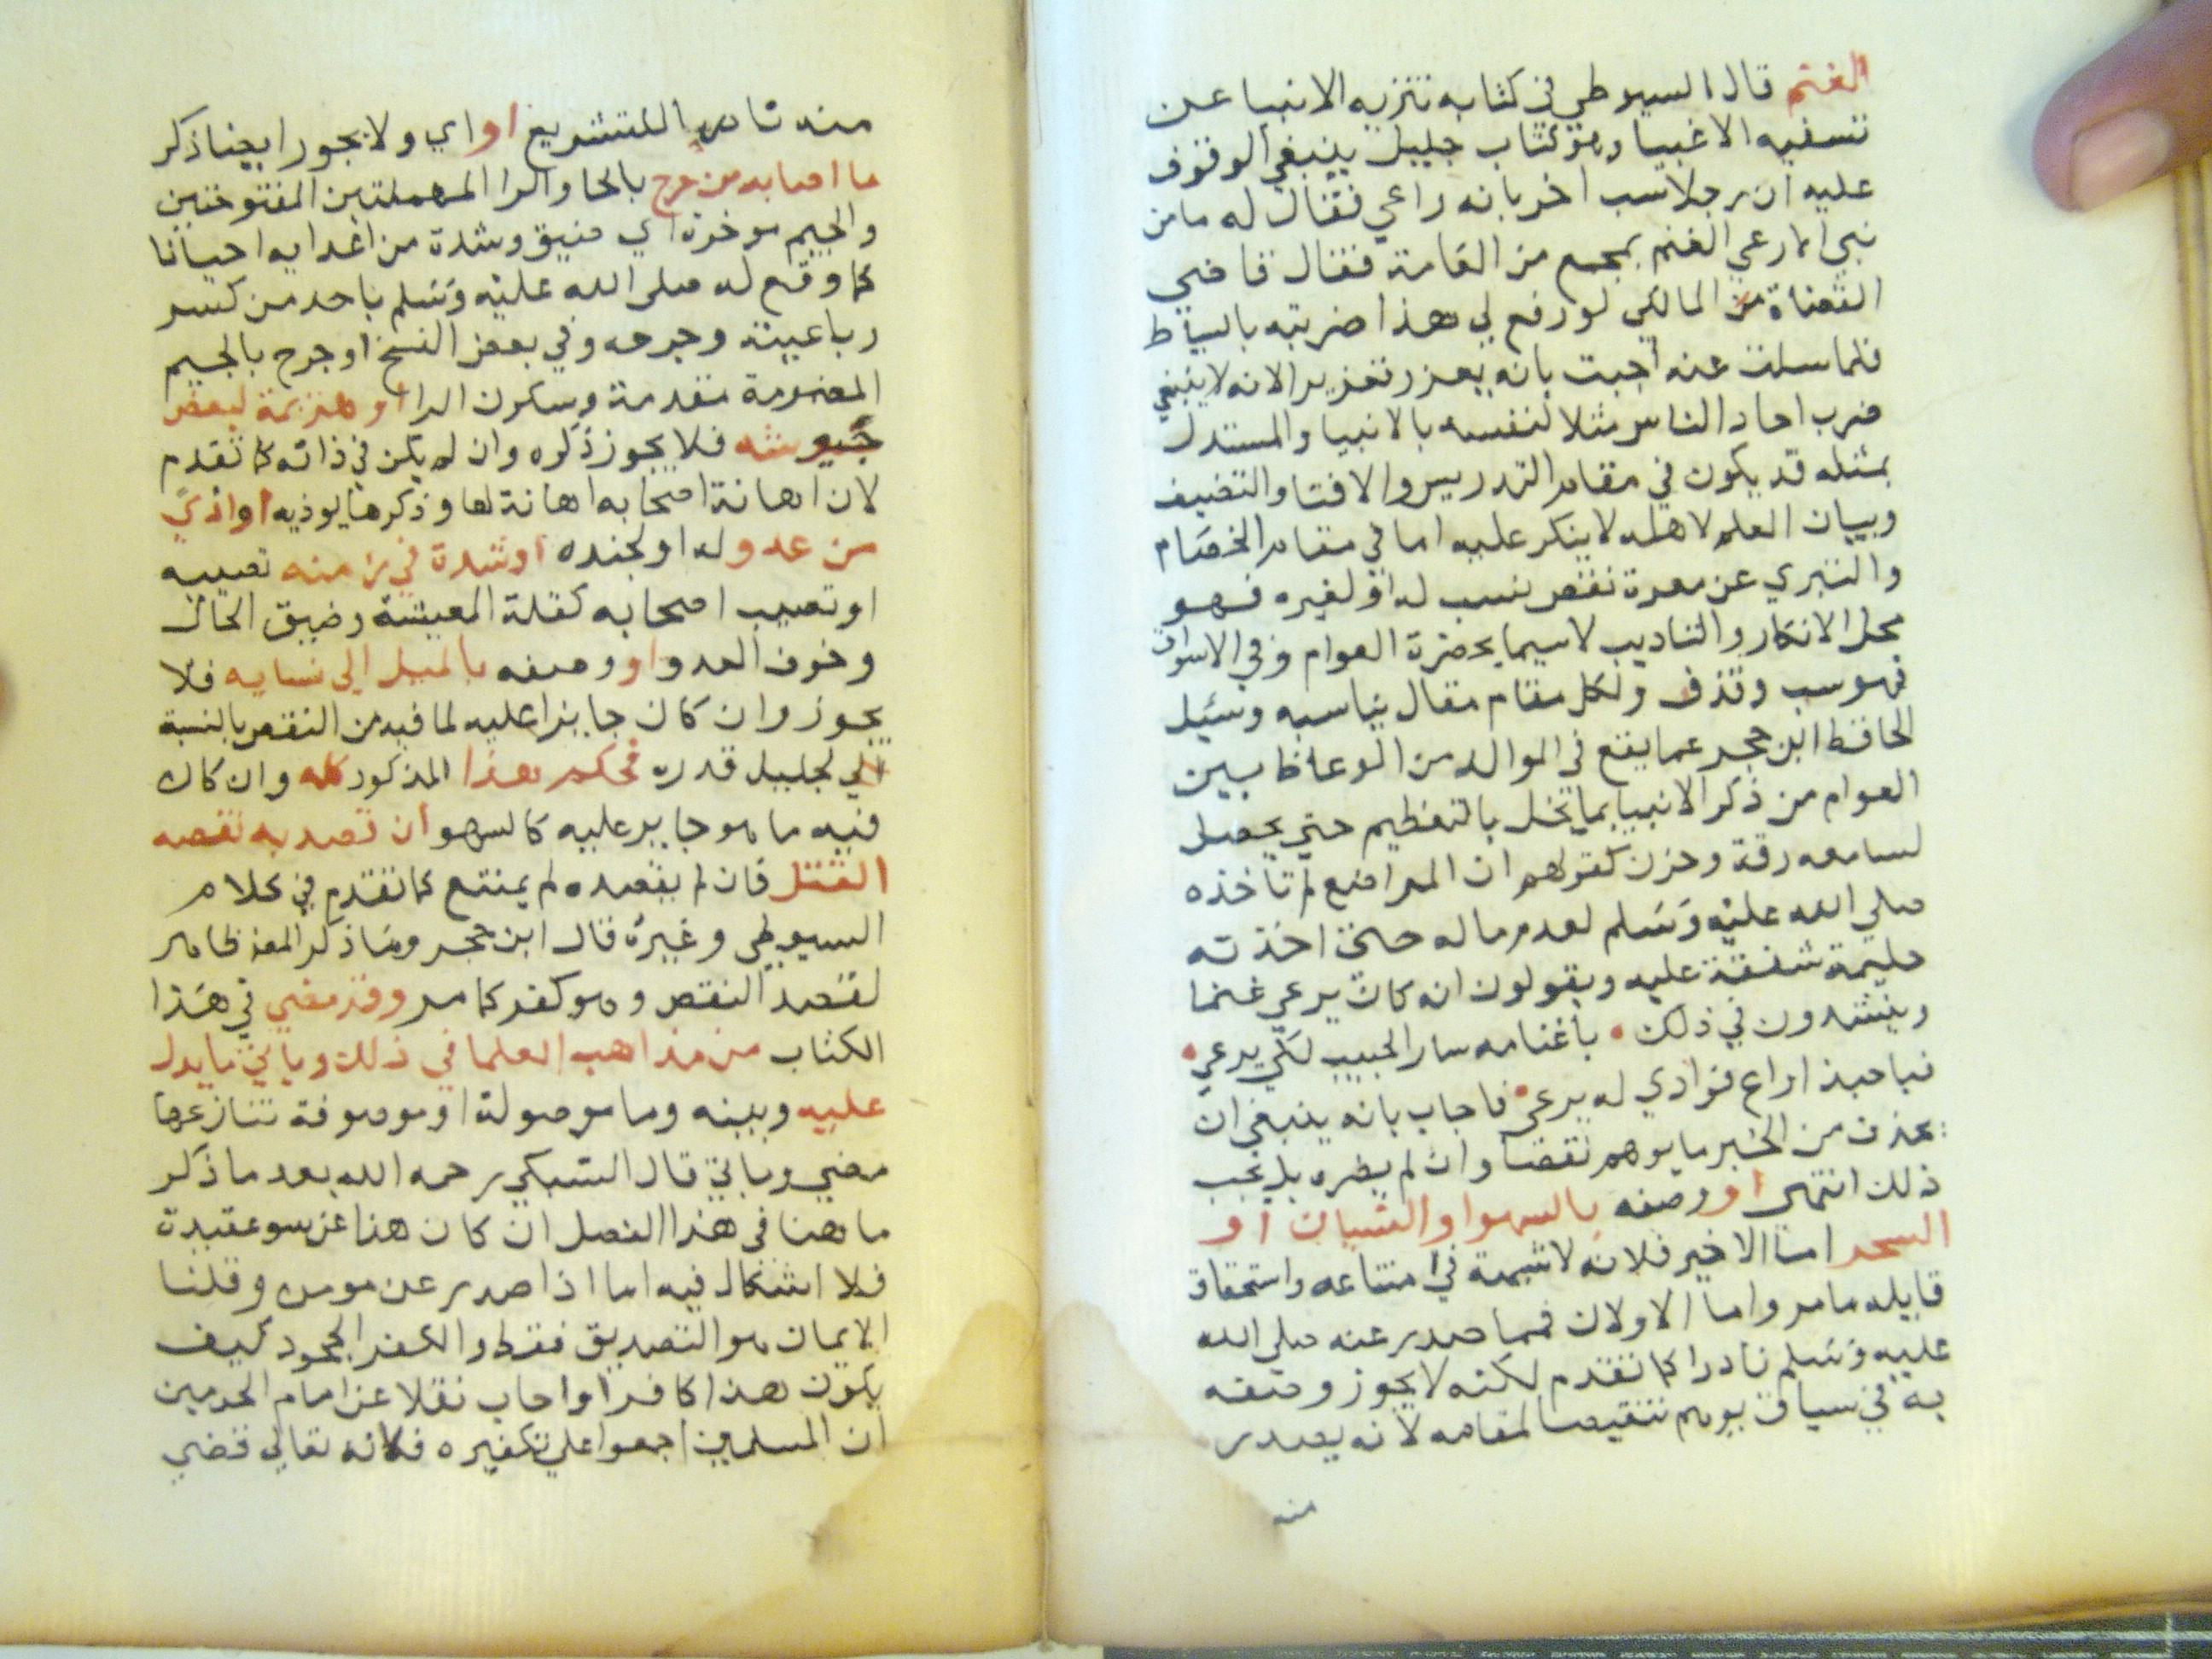 الغنم قال السيوطي في كتابه تنزيه الانبيا عن
تسفيه الاغبيا وهو كتاب جليل ينبغي الوقوف
عليه ان رجلا سب اخر بانه راعي فقال له ما من
نبي الا رعي الغنم بمجمع من العامة فقال قاضي
القضاة المالكي لو رفع لي هذا ضربته بالسياط
فلما سلت عنه اجبت بانه يعزر تعزيرا لانه لا ينبغي
ضرب احاد الناس مثلا لنفسه بالانبيا والمستدل
بمثله قد يكون في مقام التدريس والافتا والتضيف
وبيان العلم لاهله لا ينكر عليه اما في مقام الخصام
والتبري عن معرة نقص نسب له او لغيره فهو
محل الانكار والتاديب لاسيما بحضرة العوام وفي الاسواق
فهو سب وقذف ولكل مقام مقال يناسبه وسئيل
الحافظ ابن حجر عما يقع في الموالد من الوعاظ بين
العوام من ذكر الانبيا بما يخل بالتعظيم حتي يحصل
لسامعه رقة وحزن كقولهم ان المراضع لم تاخذه
صلي الله عليه وسلم لعدم ماله حتي اخذته
حليمة شفقة عليه ويقولون انه كان يرعي غنما
وينشدون في ذلك • باغنامه سار الحبيب لكي يرعي •
فيا حبذا راع فوادي له يرعي • فاجاب بانه ينبغي ان
يحذف من الخبر ما يوهم نقصا وان لم يضره بل يجب
ذلك انتهي او وصفه بالسهوا والنسيان او
السحر اما الاخير فلانه لا شبهة في امتناعه واستحقاق
قايله ما مر واما الاولان فمما صدر عنه صلي الله
عليه وسلم نادرا كما تقدم لكنه لا يجوز وصفه
به في سياق يوهم تنقيصا لمقامه لانه يصدر
منه
منه نادرا للتشريع او اي ولا يجوز ايضا ذكر
ما اصابه من حرج بالحا والرا المهملتين المفتوحتين
والجيم موخرة اي ضيق وشدة من اعدايه احيانا
كما وقع له صلي الله عليه وسلم باحد من كسر
رباعيته وجرحه وفي بعض النسخ او جرح بالجيم
المضمومة مقدمة وسكون الرا او هزيمة لبعض
جيوشه فلا يجوز ذكره وان لم يكن في ذاته كما تقدم
لان اهانة اصحابه اهانة لها وذكرها يوذيه او اذي
من عدو له او لجنده او شدة في زمنه تصيبه
او تصيب اصحابه كقلة المعيشة وضيق الحال
وخوف العدو او وصفه بالميل الي نسايه فلا
يجوز وان كان جايزا عليه لما فيه من النقص بالنسبة
الي لجليل قدره فحكم هذا المذكور كله وان كان
فيه ما هو جايز عليه كالسهو ان قصد به نقصه
القتل فان لم يقصده لم يمنتع كما تقدم في كلام
السيوطي وغيره قال ابن حجر وما ذكر المص ظاهر
لقصد النقص وهو كفر كما مر وقد مضي في هذا
الكتاب من مذاهب العلما في ذلك وياتي ما يدل
عليه ويبينه وما موصولة او موصوفة تنازعها
مضي وياتي قال السبكي رحمه الله بعد ما ذكر
ما هنا في هذا الفصل ان كان هذا عن سو عقيدة
فلا اشكال فيه اما اذا صدر عن مومن وقلنا
الايمان هو التصديق فقط والكفر الجحود كيف
يكون هذا كافرا واجاب نقلا عن امام الحرمين
ان المسلمين اجمعوا علي تكفيره فكانه تعالي قضي